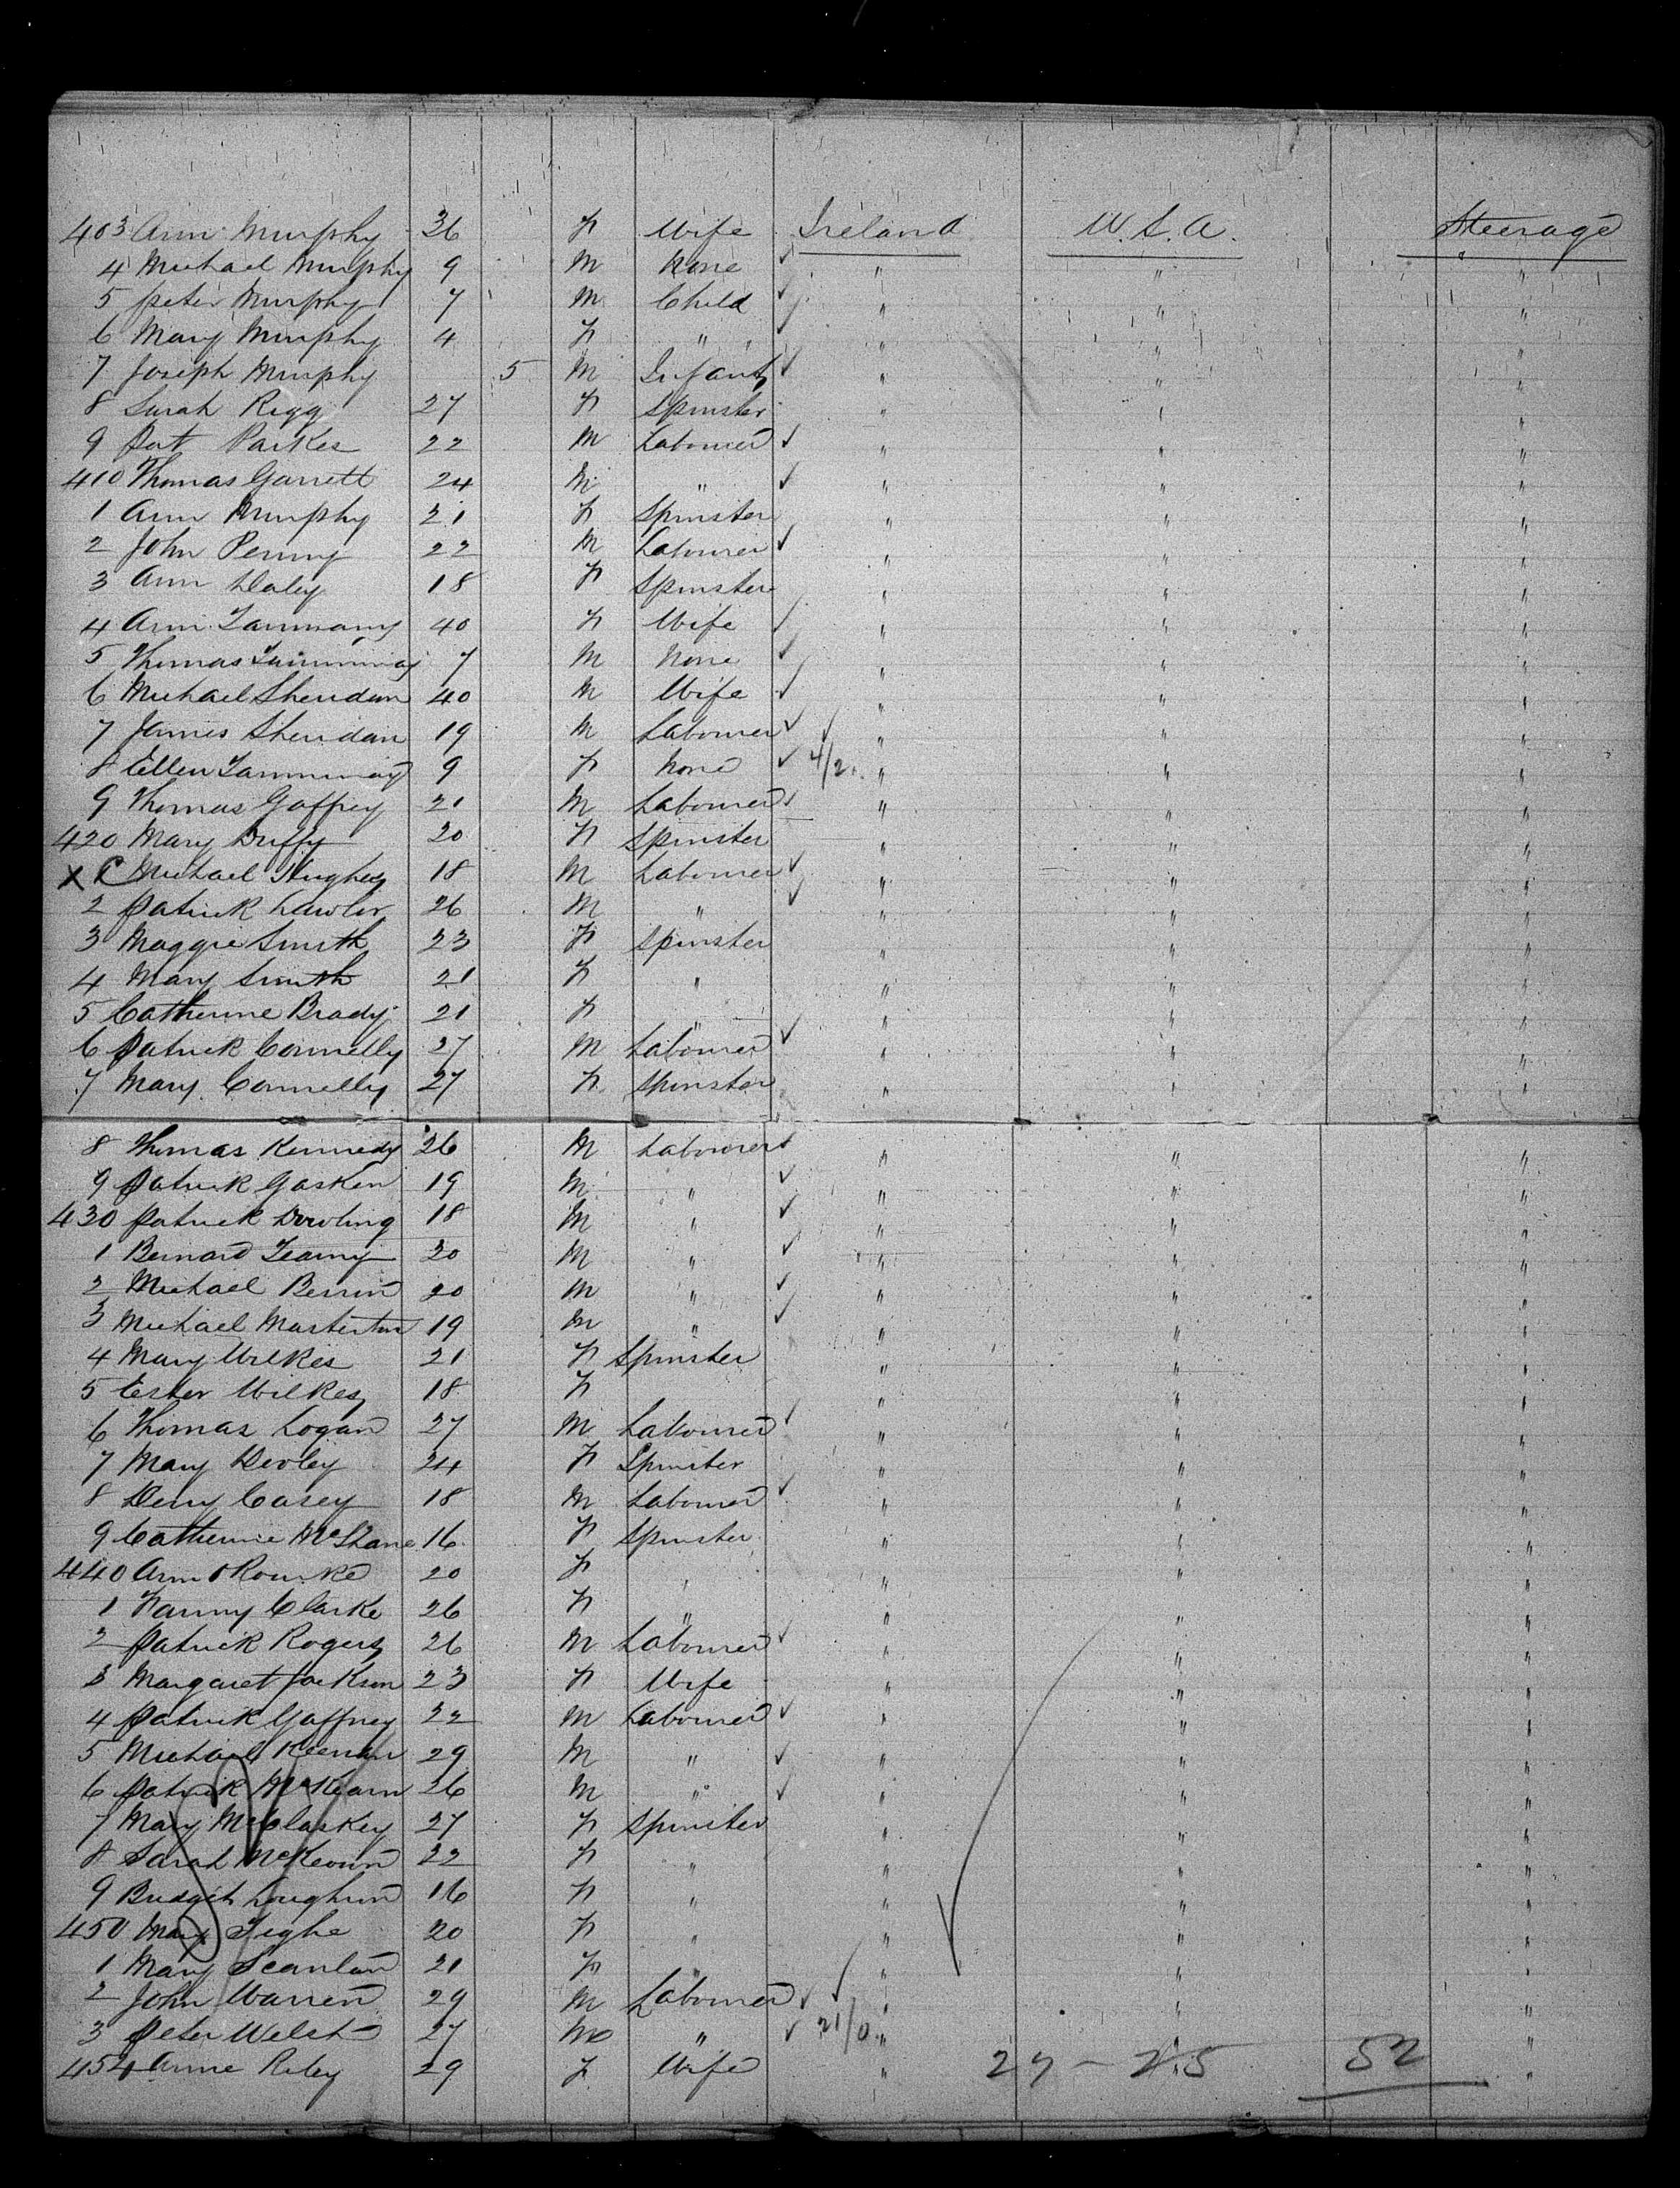 403 Ann Murphy 36 F Wife Ireland U.S.A. Steerage
4 Michael Murphy 9 M None ✓ " " "
5 Peter Murphy 7 M Child ✓ " " "
6 Mary Murphy 4 F " " " "
7 Joseph Murphy 5 M Infant ✓ " " "
8 Sarah Rigg 27 F Spinster " " "
9 Pat Parkes 22 M Labourer ✓ " " "
410 Thomas Garrett 24 M " ✓ " " "
1 Ann Murphy 21 F Spinster " " "
2 John Penny 22 M Labourer ✓ " " "
3 Ann Daly 18 F Spinster " " "
4 Ann 40 F Wife " " "
5 Thomas 7 M None ✓ " " "
6 Michael Sheridan 40 M Wife ✓ " " "
7 James Sheridan 19 M Labourer ✓ ✓ " " "
8 Ellen 9 F None ✓ 4/2. " " "
9 Thomas Gaffney 21 M Labourer ✓ " " "
420 Mary Duffy 20 F Spinster " " "
X Michael Hughes 18 M Labourer ✓ " " "
2 Patrick Lawler 26 M " ✓ " " "
3 Maggie Smith 23 F Spinster " " "
4 Mary Smith 21 F " " " "
5 Catherine Brady 21 F " " " "
6 Patrick Connelly 27 M Labourer ✓ " " "
7 Mary Connelly 27 F Spinster " " "
8 Thomas Kennedy 26 M Labourer ✓ " " "
9 Patrick Gasken 19 M " ✓ " " "
430 Patrick Dowling 18 M " ✓ " " "
1 Bernard 20 M " ✓ " " "
2 Michael 20 M " ✓ " " "
3 Michael Masterton 19 M " ✓ " " "
4 Mary Wilkes 21 F Spinster " " "
5 Ester Wilkes 18 F " " "
6 Thomas Logan 27 M Labourer ✓ " " "
7 Mary 24 F Spinster " " "
8 Casey 18 M Labourer ✓ " " "
9 Catherine McShane 16 F Spinster " " "
440 Ann O'Rourke 20 F " " " "
1 Fanny Clarke 26 F " " " "
2 Patrick Rogers 26 M Labourer ✓ " " "
3 Margaret Jackson 23 F Wife " " "
4 Patrick Gaffney 22 M Labourer ✓ " " "
5 Michael Keenan 29 M " ✓ " " "
6 Patrick McKearn 26 M " ✓ " " "
7 Mary McClaskey 27 F Spinster " " "
8 Sarah McKeown 22 F " " " "
9 Bridget Loughran 16 F " " " "
450 Mary Tighe 20 F " " " "
1 Mary Scanlan 21 F " " " "
2 John Warren 29 M Labourer ✓ ✓ " " "
3 Peter Welsh 27 M " ✓ 21/0. " " "
454 Anne Riley 29 F Wife " 27 - 25 52 "